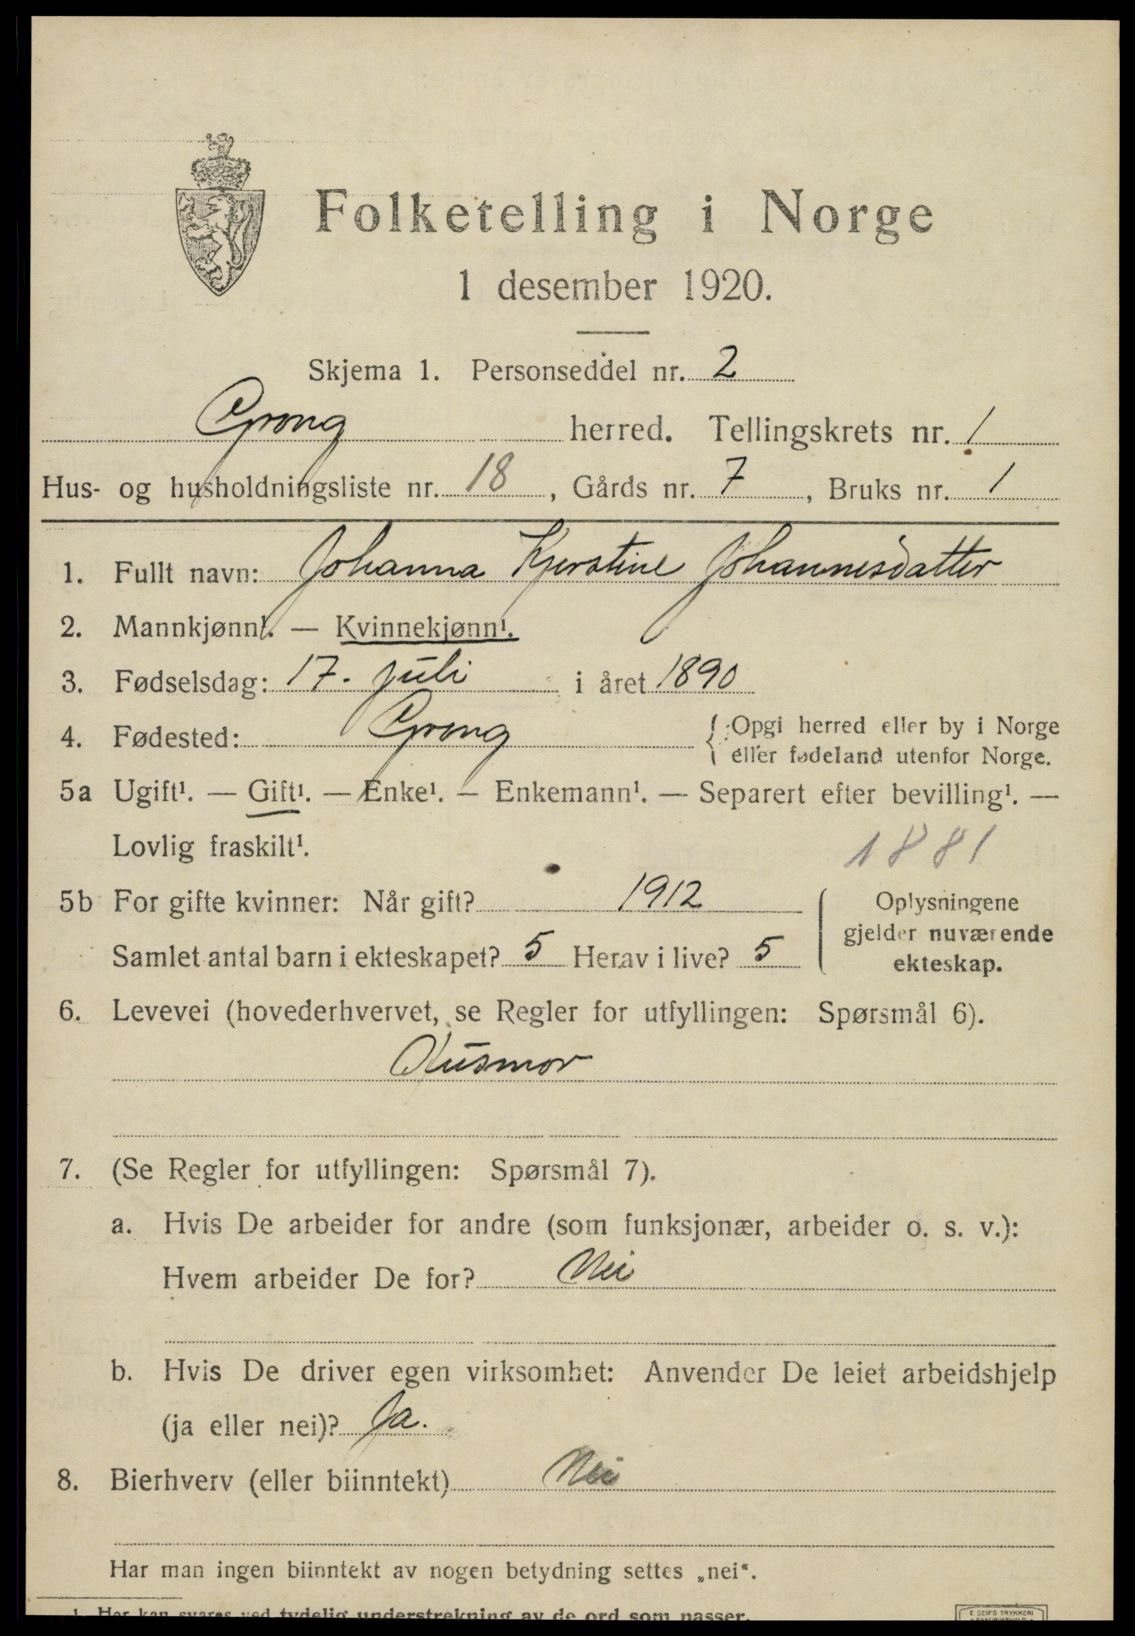 Folketelling i Norge
1 desember 1920.
Skjema 1. Personseddel nr. 2
Grong herred. Tellingskrets nr. 1
Hus- og husholdningsliste nr. 18, Gårds nr. 7, Bruks nr. 1
1. Fullt navn: Johanna Kjerstine Johannesdatter
2. Mannkjønn¹. — Kvinnekjønn¹.
3. Fødselsdag: 17. juli i året 1890
4. Fødested: Grong { Opgi herred eller by i Norge
eller fødeland utenfor Norge.
5a Ugift¹. — Gift¹. — Enke¹. — Enkemann¹. — Separert efter bevilling¹. —
Lovlig fraskilt¹. 1881
5b For gifte kvinner: Når gift? 1912
Samlet antal barn i ekteskapet? 5 Herav i live? 5
Oplysningene
gjelder nuværende
ekteskap.
6. Levevei (hovederhvervet, se Regler for utfyllingen: Spørsmål 6).
Husmor
7. (Se Regler for utfyllingen: Spørsmål 7).
a. Hvis De arbeider for andre (som funksjonær, arbeider o. s. v.):
Hvem arbeider De for? Nei
b. Hvis De driver egen virksomhet: Anvender De leiet arbeidshjelp
(ja eller nei)? Ja.
8. Bierhverv (eller biinntekt) Nei
Har man ingen biinntekt av nogen betydning settes „nei".
1. Her kan svares ved tydelig understrekning av de ord som passer.